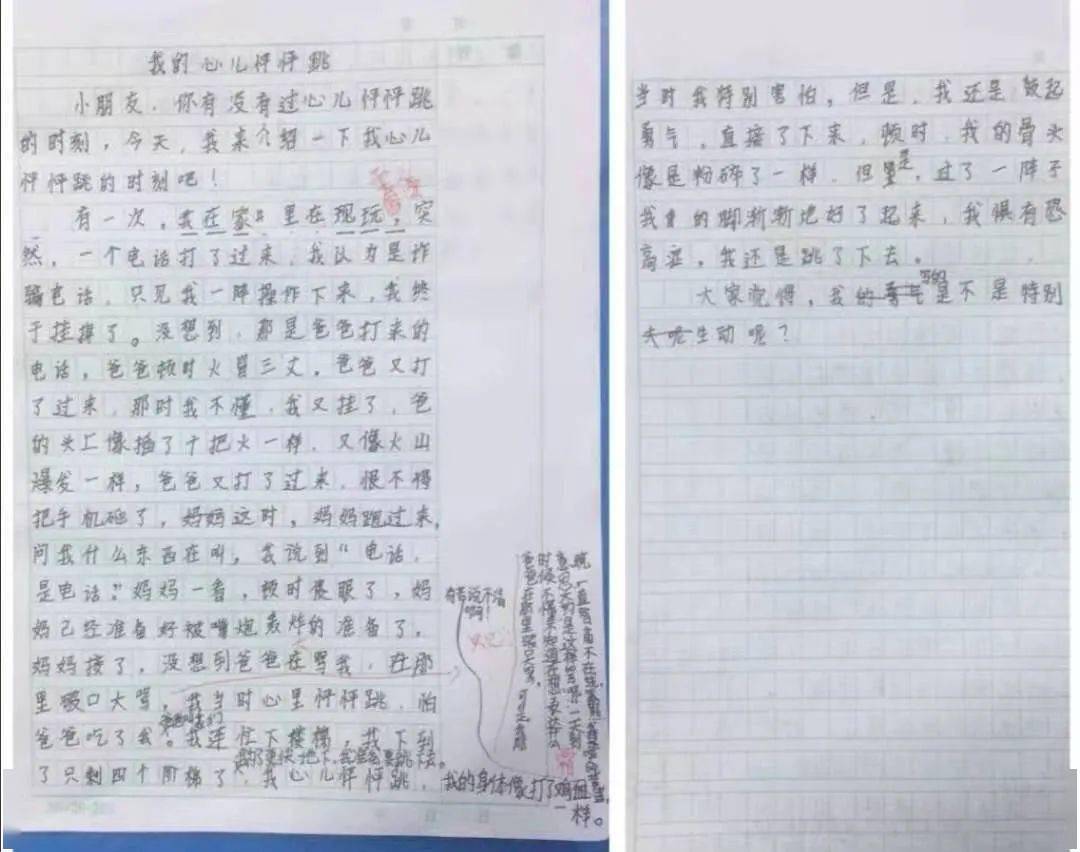 我的心儿怦怦跳
小朋友，你有没有过心儿怦怦跳
的时刻，今天，我来介绍一下我心儿
怦怦跳的时刻吧！
有一次，我在家里在玩，突
然，一个电话打了过来，我认为是诈
骗电话，只见我一阵操作下来，我终
于挂掉了。没想到，那是爸爸打来的
电话，爸爸顿时火冒三丈，爸爸又打
了过来，那时我不懂，我又挂了，爸
的头上像插了十把火一样，又像火山
爆发一样，爸爸又打了过来，恨不得
把手机砸了，妈妈这时，妈妈跑过来，
问我什么东西在叫，我说到“电话，
是电话”妈妈一看，顿时傻眼了，妈
妈已经准备好被嘴炮轰炸的准备了，
妈妈接了，没想到爸爸在骂我，在那
里破口大骂，我当时心里怦怦跳，怕
爸爸吃了我。我连忙下楼梯，我下到
为了更快地下，我是会要跳下去。
了只剩四个阶梯了，我心儿怦怦跳，我的身体像打了鸡血
一样。
爸爸在那里破口大骂，
当时我特别害怕，但是，我还是鼓起
勇气，直接了下来，顿时，我的骨头
像是粉碎了一样，但是，过了一阵子
我的脚渐渐地好了起来，我惧有恐
高症，我还是跳了下去。
大家觉得，我写的是不是特别
生动呢？